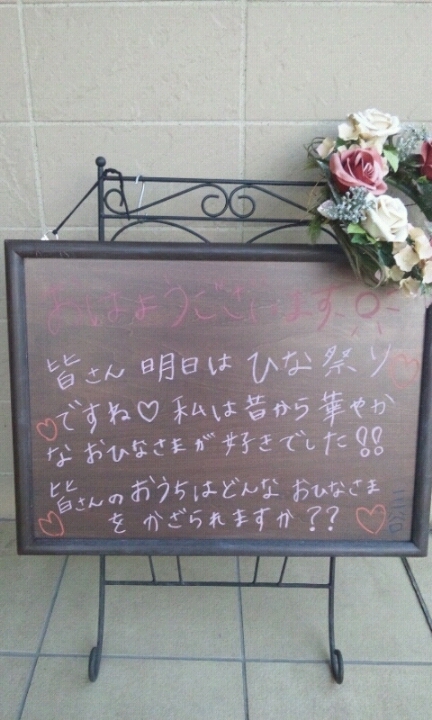 おはようございます
皆さん 明日は ひな祭り
ですね♡ 私は昔から 華やか
な おひなさまが 好きでした!!
皆さんの おうちは どんな おひなさま
を かざられますか??